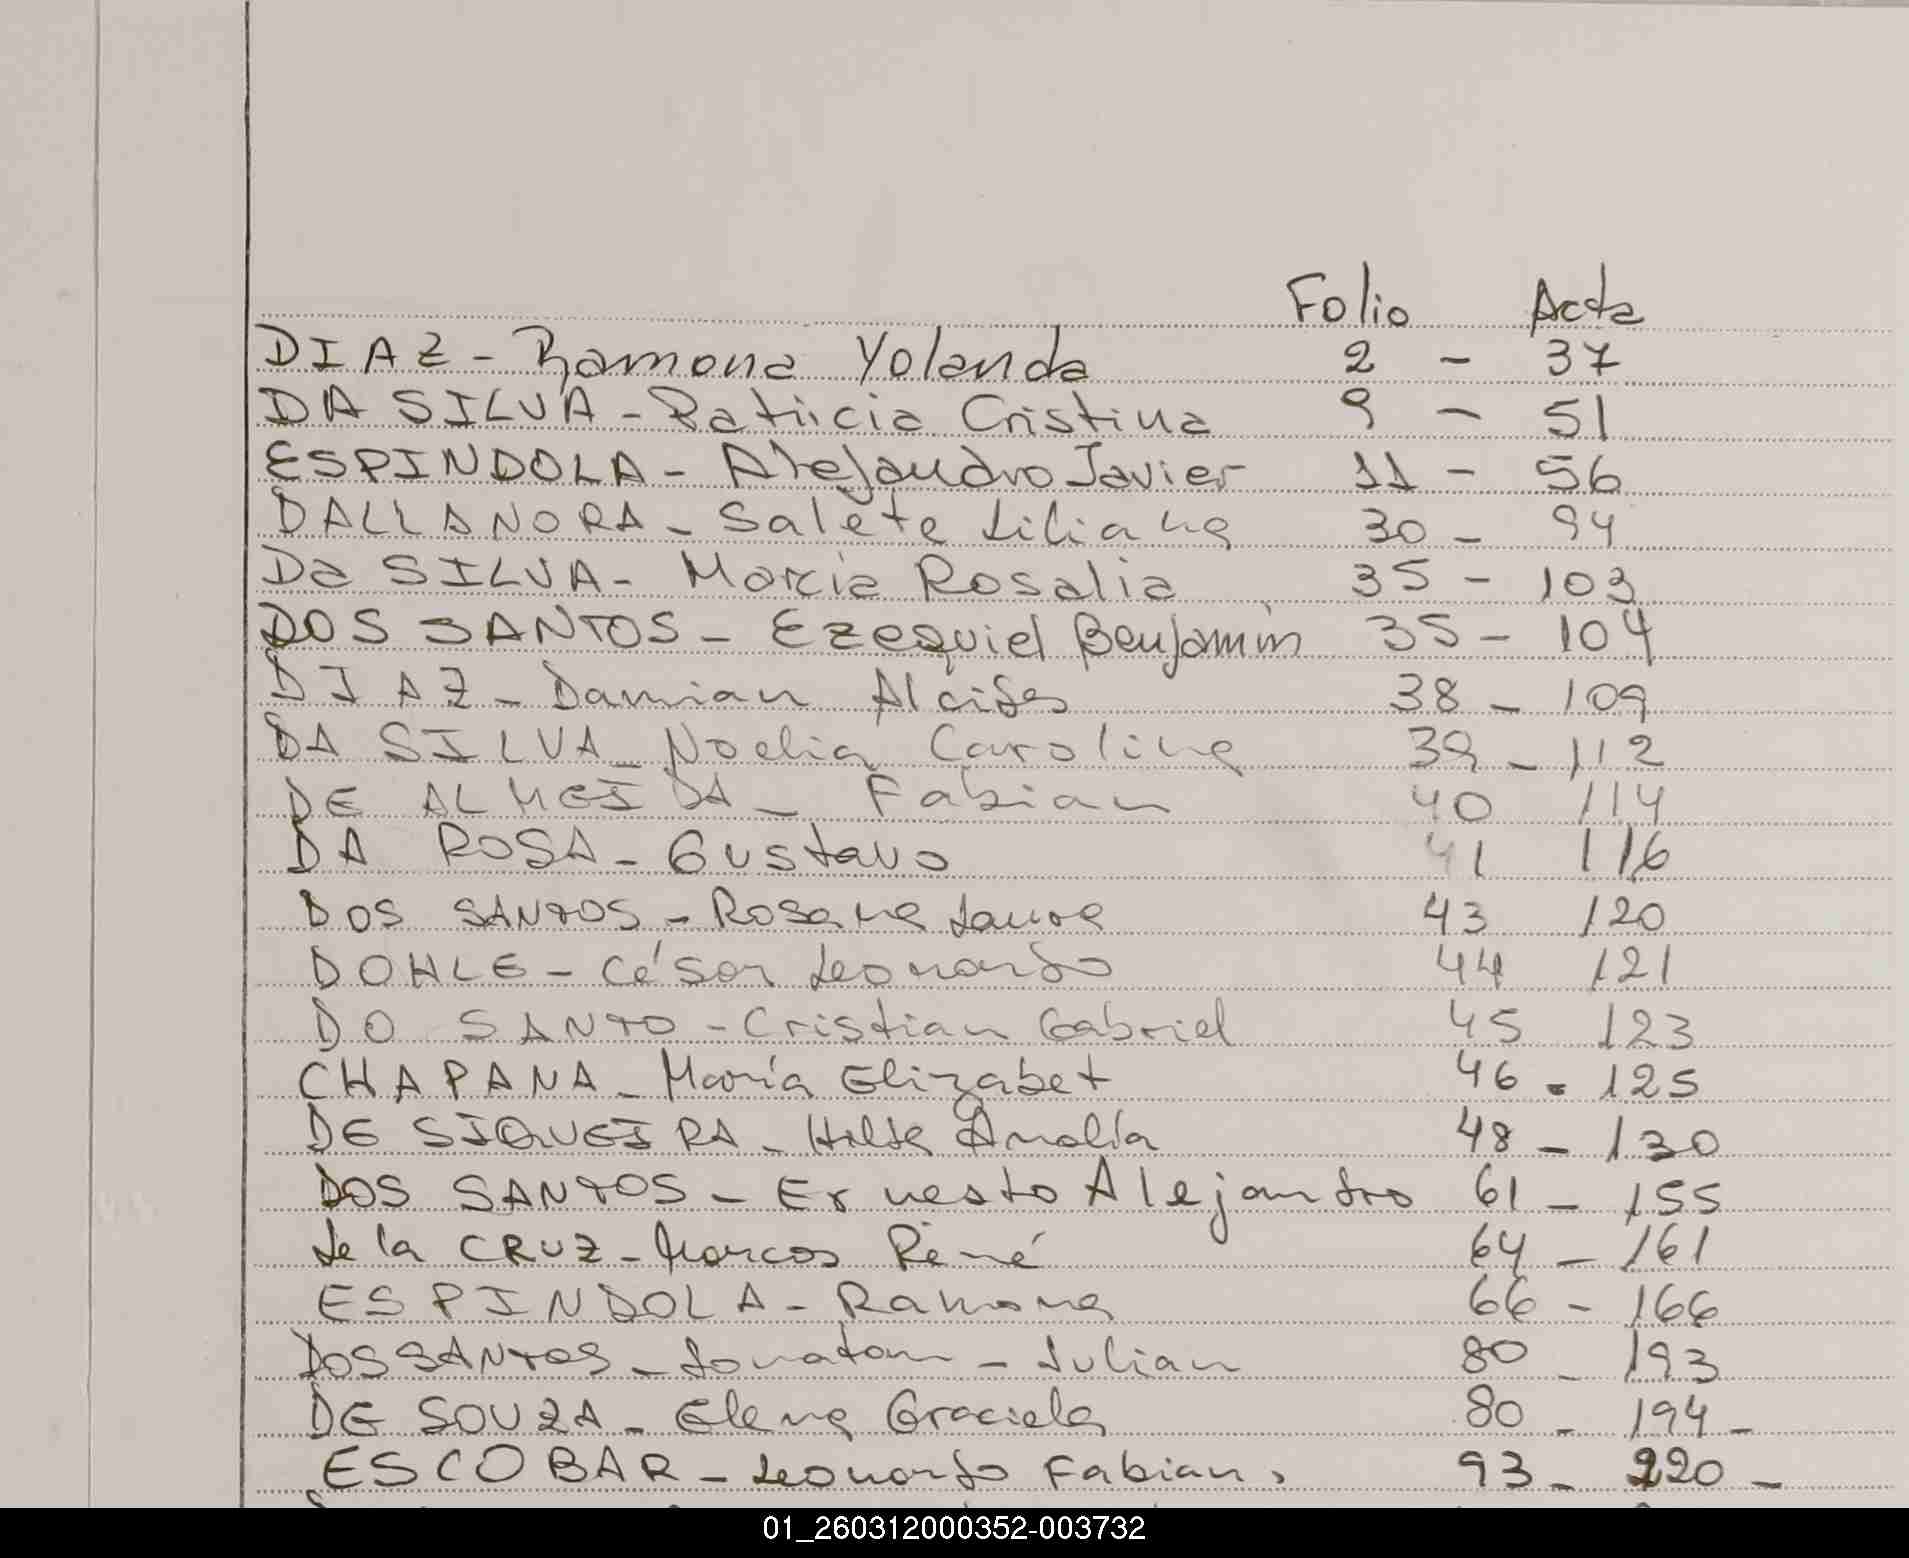 Folio Acta
DIAZ - Ramona Yolanda 2 - 37
DA SILVA - Patricia Cristina 9 - 51
ESPINDOLA - Alejandro Javier 11 - 56
DALLANORA - Salete Liliana 30 - 94
Da SILVA - Marcia Rosalia 35 - 103
DOS SANTOS - Ezequiel Benjamín 35 - 104
DIAZ - Damian Alcides 38 - 109
DA SILVA - Noelia Carolina 39 - 112
DE ALMEIDA - Fabian 40 114
DA ROSA - Gustavo 41 116
DOS SANTOS - Rosana Laura 43 120
DOHLE - César Leonardo 44 121
DO SANTO - Cristian Gabriel 45 123
CHAPANA - María Elizabet 46 - 125
DE SIQUEIRA - Hilda Amalía 48 - 130
DOS SANTOS - Ernesto Alejandro 61 - 155
de la CRUZ - Marcos René 64 - 161
ESPINDOLA - Ramona 66 - 166
DOS SANTOS - Jonatan - Julian 80 - 193
DE SOUZA - Elena Graciela 80 - 194 -
ESCOBAR - Leonardo Fabian. 93 - 220 -
01_260312000352-003732